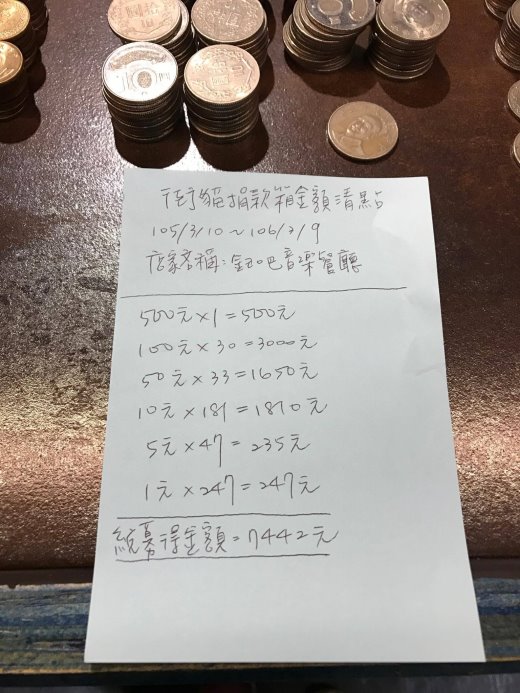 街貓捐款箱金額清點
105/3/10~106/2/9
店家名稱:金加吧音樂餐廳
500元×1=500元
100元×30=3000元
50元×33=1650元
10元×181=1810元
5元×47=235元
1元×247=247元
總募得金額=7442元